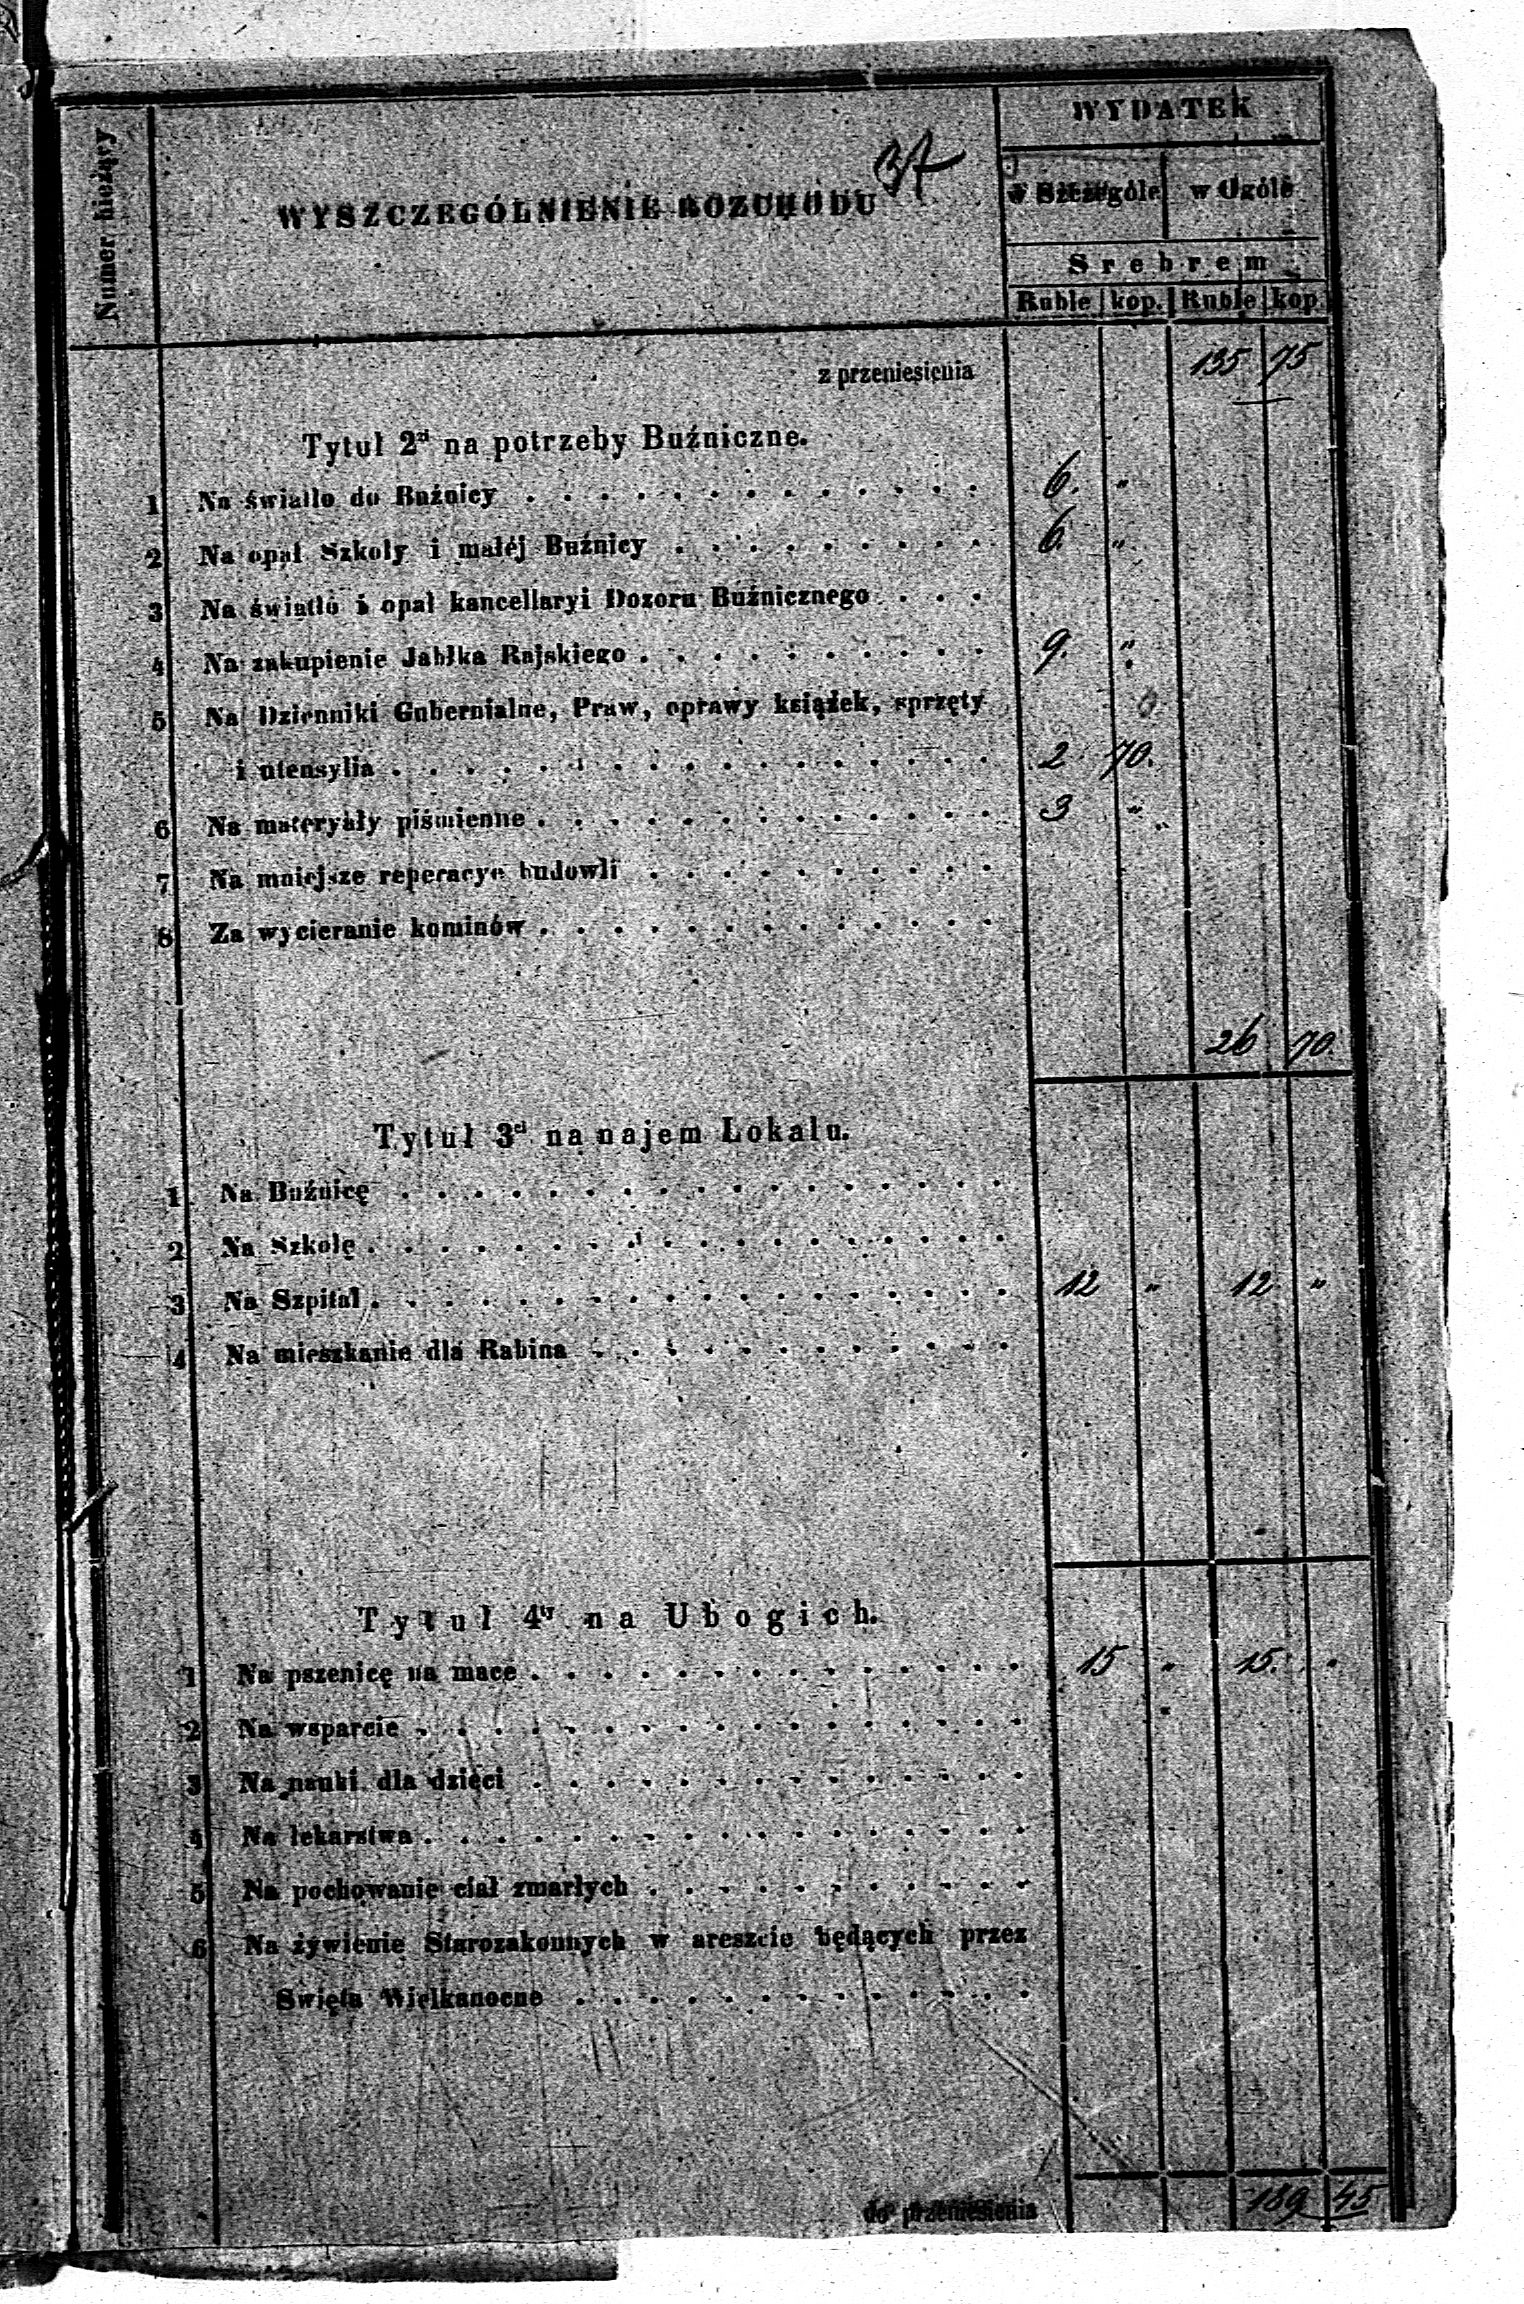 37
WYDATEK
Numer bieżący
WYSZCZEGÓLNIENIE ROZCHODU
w Szczególe w Ogóle
Srebrem
Ruble kop. Ruble kop.
z przeniesienia 135 75
Tytuł 2gi na potrzeby Buźniczne.
1 Na światło do Buźnicy 6. "
2 Na opał Szkoły i małéj Buźnicy 6. "
3 Na światło i opał kancellaryi Dozoru Buźnicznego
4 Na zakupienie Jabłka Rajskiego 9. "
5 Na Dzienniki Gubernialne, Praw, oprawy książek, sprzęty
i utensylia 2 70.
6 Na materyały piśmienne 3 "
7 Na mniejsze reperacye budowli
8 Za wycieranie kominów
26 70
Tytuł 3ci na najem Lokalu.
1 Na Buźnicę
2 Na Szkołę
3 Na Szpital 12 " 12 "
4 Na mieszkanie dla Rabina
Tytuł 4ty na Ubogich.
1 Na pszenicę na mace 15 " 15. "
2 Na wsparcie
3 Na nauki dla dzieci
4 Na lekarstwa
5 Na pochowanie ciał zmarłych
6 Na żywienie Starozakonnych w areszcie będących przez
Święta Wielkanocne
do przeniesienia 189 45